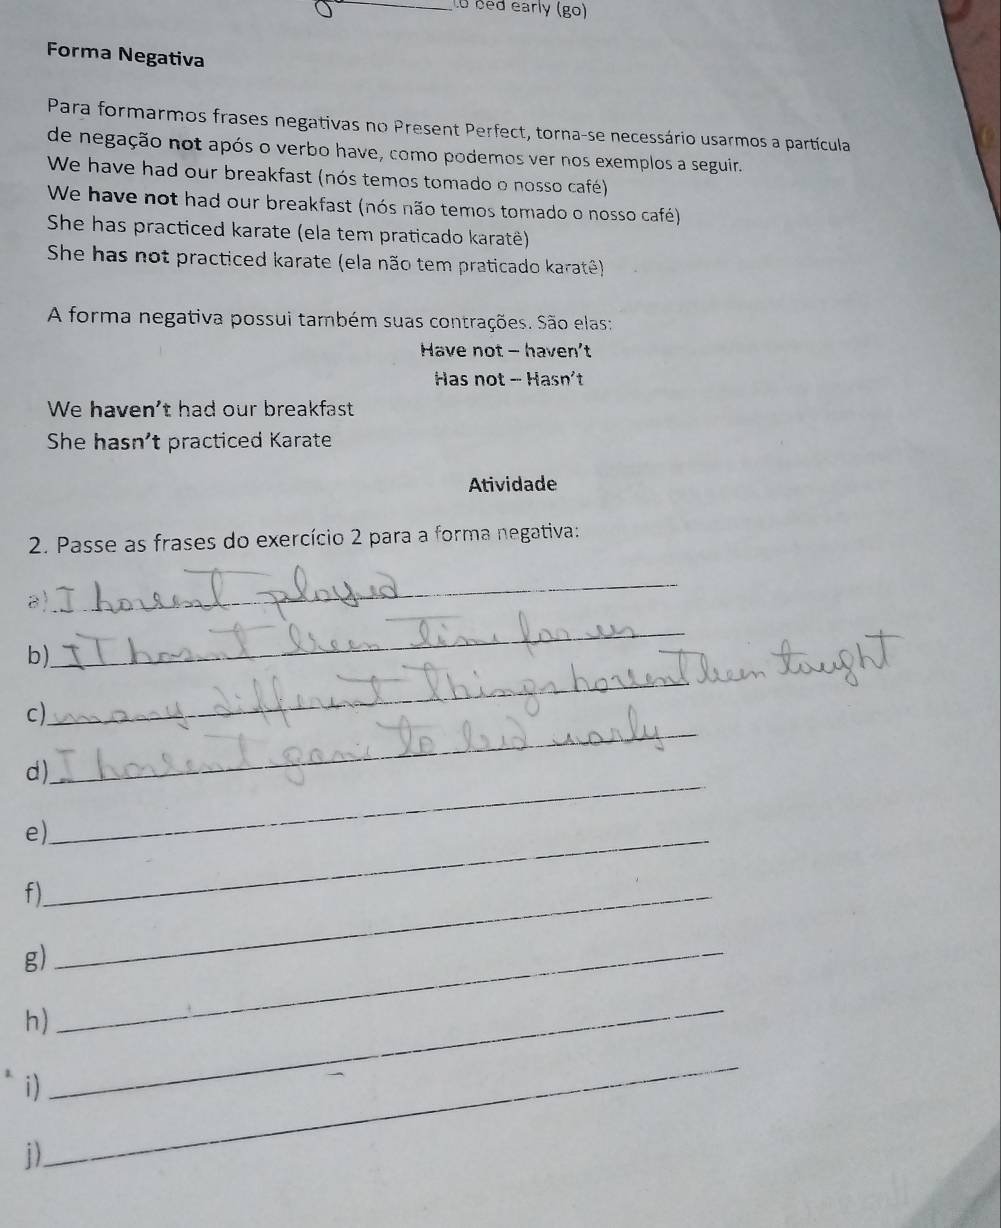 to bed early (go)
Forma Negativa
Para formarmos frases negativas no Present Perfect, torna-se necessário usarmos a partícula
de negação not após o verbo have, como podemos ver nos exemplos a seguir.
We have had our breakfast (nós temos tomado o nosso café)
We have not had our breakfast (nós não temos tomado o nosso café)
She has practiced karate (ela tem praticado karatê)
She has not practiced karate (ela não tem praticado karatê)
A forma negativa possui também suas contrações. São elas:
Have not – haven't
Has not – Hasn't
We haven't had our breakfast
She hasn't practiced Karate
Atividade
2. Passe as frases do exercício 2 para a forma negativa:
a) I havent played
b) IT hasn't been time for us
c) many different things havent been taught
d) I havent gone to bed early
e)
f)
g)
h)
i)
j)